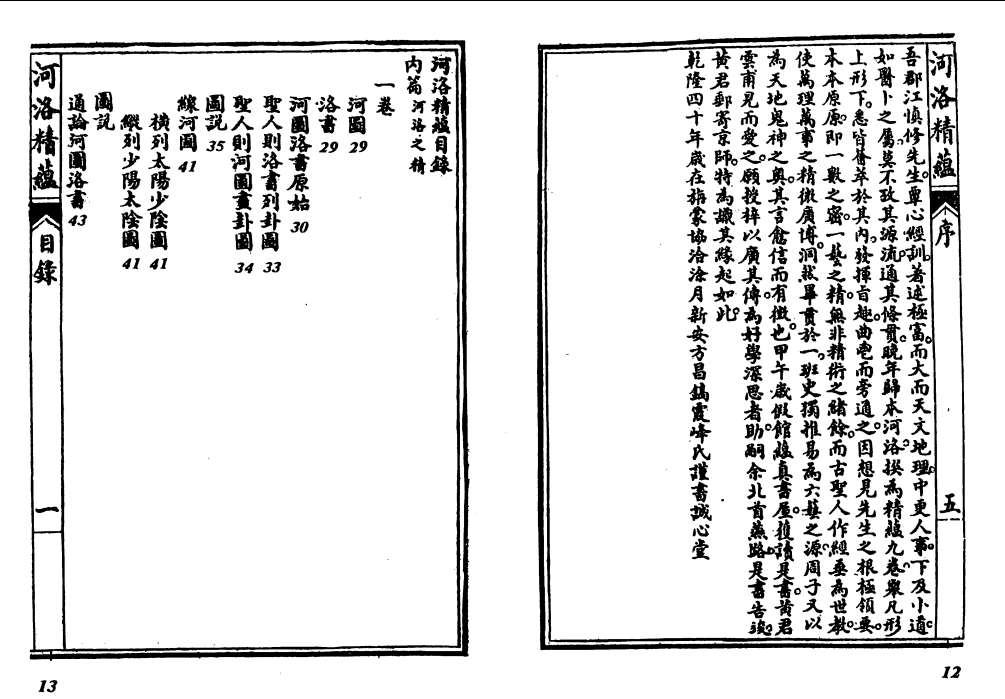 河洛精蘊
序
五
吾郡江慎修先生覃心經訓著述極富而大而天文地理中更人事下及小道
如醫卜之屬莫不攷其源流通其條貫晚年歸本河洛撰為精蘊九卷舉凡形
上形下悉皆薈萃於其內發揮旨趣曲鬯而旁通之因想見先生之根極領要
本本原原即一數之密一藝之精無非精術之緒餘而古聖人作經垂為世教
使萬理萬事之精微廣博洞然畢貫於一班史獨推易為六藝之源周子又以
為天地鬼神之奧其言愈信而有徵也甲午歲假館蘊真書屋獲讀是書黃君
雲甫見而愛之願授梓以廣其傳為好學深思者助嗣余北首燕路是書告竣
黃君郵寄京師特為識其緣起如此
乾隆四十年歲在旃蒙協洽涂月新安方昌鎬霞峰氏謹書誠心堂
12
河洛精蘊目錄
內篇河洛之精
一卷
河圖 29
洛書 29
河圖洛書原始 30
聖人則洛書列卦圖 33
聖人則河圖畫卦圖 34
圖說 35
線河圖 41
橫列太陽少陰圖 41
縱列少陽太陰圖 41
圖說
通論河圖洛書 43
河洛精蘊
目錄
一
13